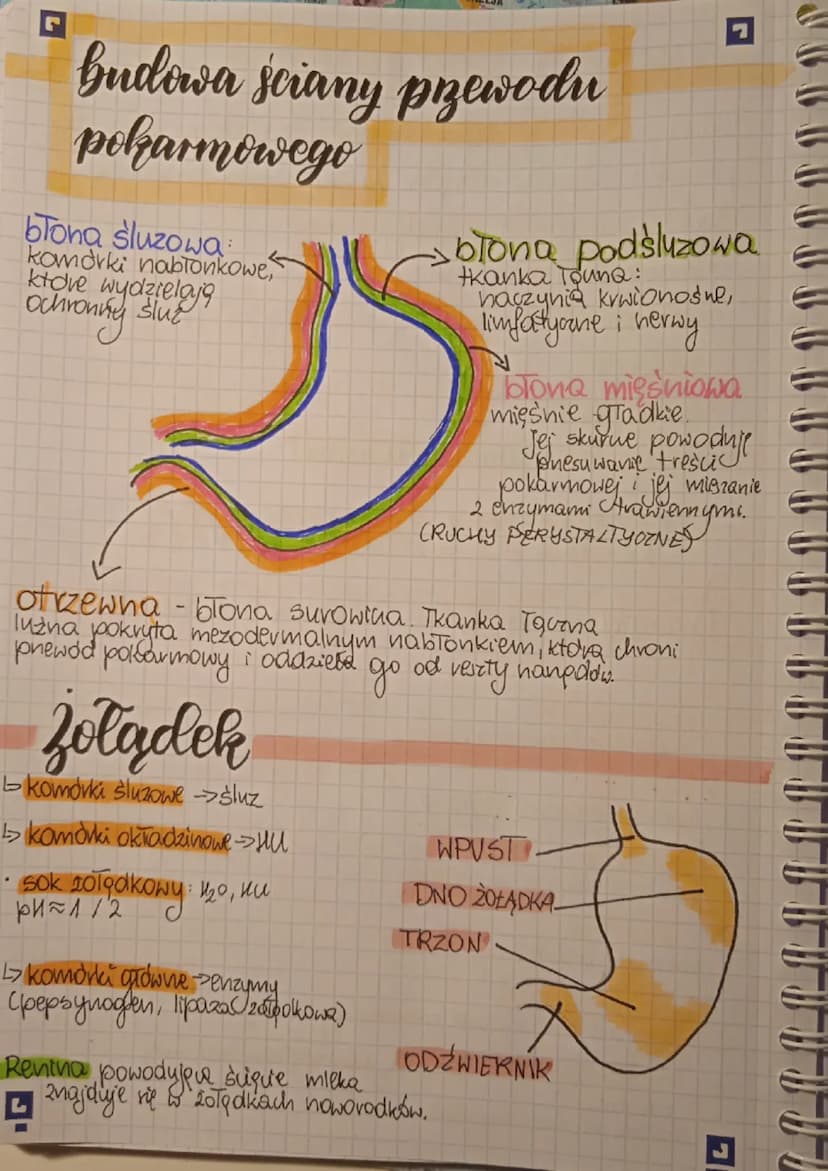 budowa ściany przewodu
pokarmowego
błona śluzowa:
komórki nabłonkowe,
które wydzielają
ochronny śluz
błona podśluzowa
tkanka łączna:
naczynia krwionośne,
limfatyczne i nerwy
błona mięśniowa
mięśnie gładkie.
jej skurcze powoduje
przesuwanie treści
pokarmowej i jej mieszanie
z enzymami trawiennymi.
(RUCHY PERYSTALTYCZNE)
otrzewna - błona surowicza. Tkanka łączna
luźna pokryta mezodermalnym nabłonkiem, która chroni
przewód pokarmowy i oddziela go od reszty narządów.
żołądek
↳ komórki śluzowe → śluz
↳ komórki okładzinowe → HCl
• sok żołądkowy: H2O, HCl
pH ≈ 1 / 2
↳ komórki główne → enzymy
(pepsynogen, lipaza żołądkowa)
Renina powodująca ścięcie mleka
znajduje się w żołądkach noworodków.
WPUST
DNO ŻOŁĄDKA
TRZON
ODŹWIERNIK